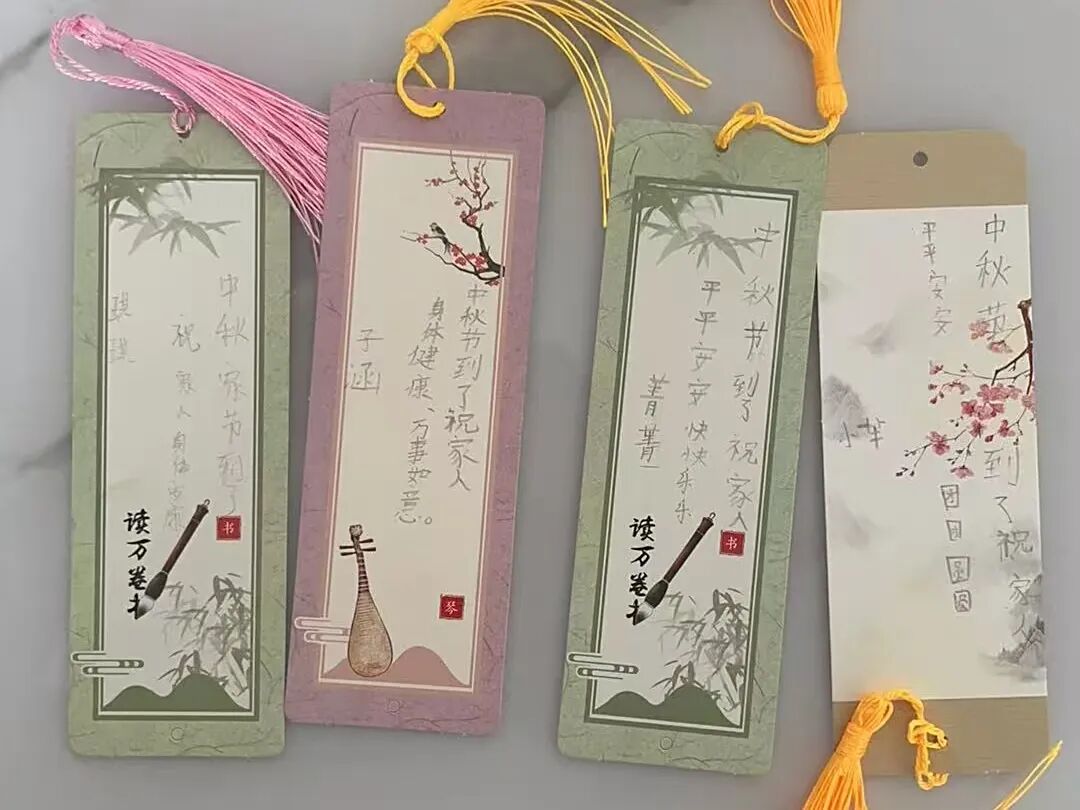 中秋家节到了
祝家人身体安康
读万卷书
书
中秋节到了祝家人
身体健康、万事如意。
子涵
琴
中秋节到了祝家人
平平安安快快乐乐
菁菁
读万卷书
书
中秋节到了祝家人
平平安安
团团圆圆
小